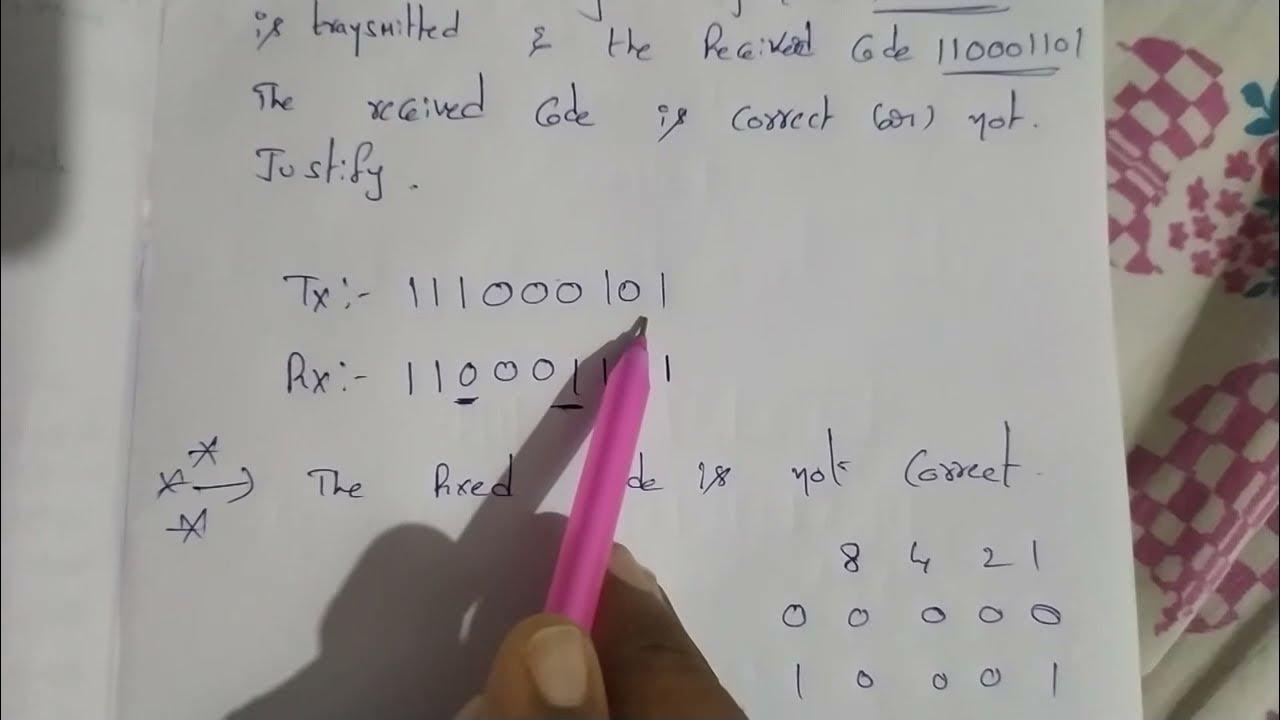 is traysmitted & the Received Code 110001101
The received Code is correct (or) not.
Justify.
Tx:- 111000101
Rx:- 110001 1
The Rxed de is not correct
8 4 2 1
0 0 0 0 0
1 0 0 0 1